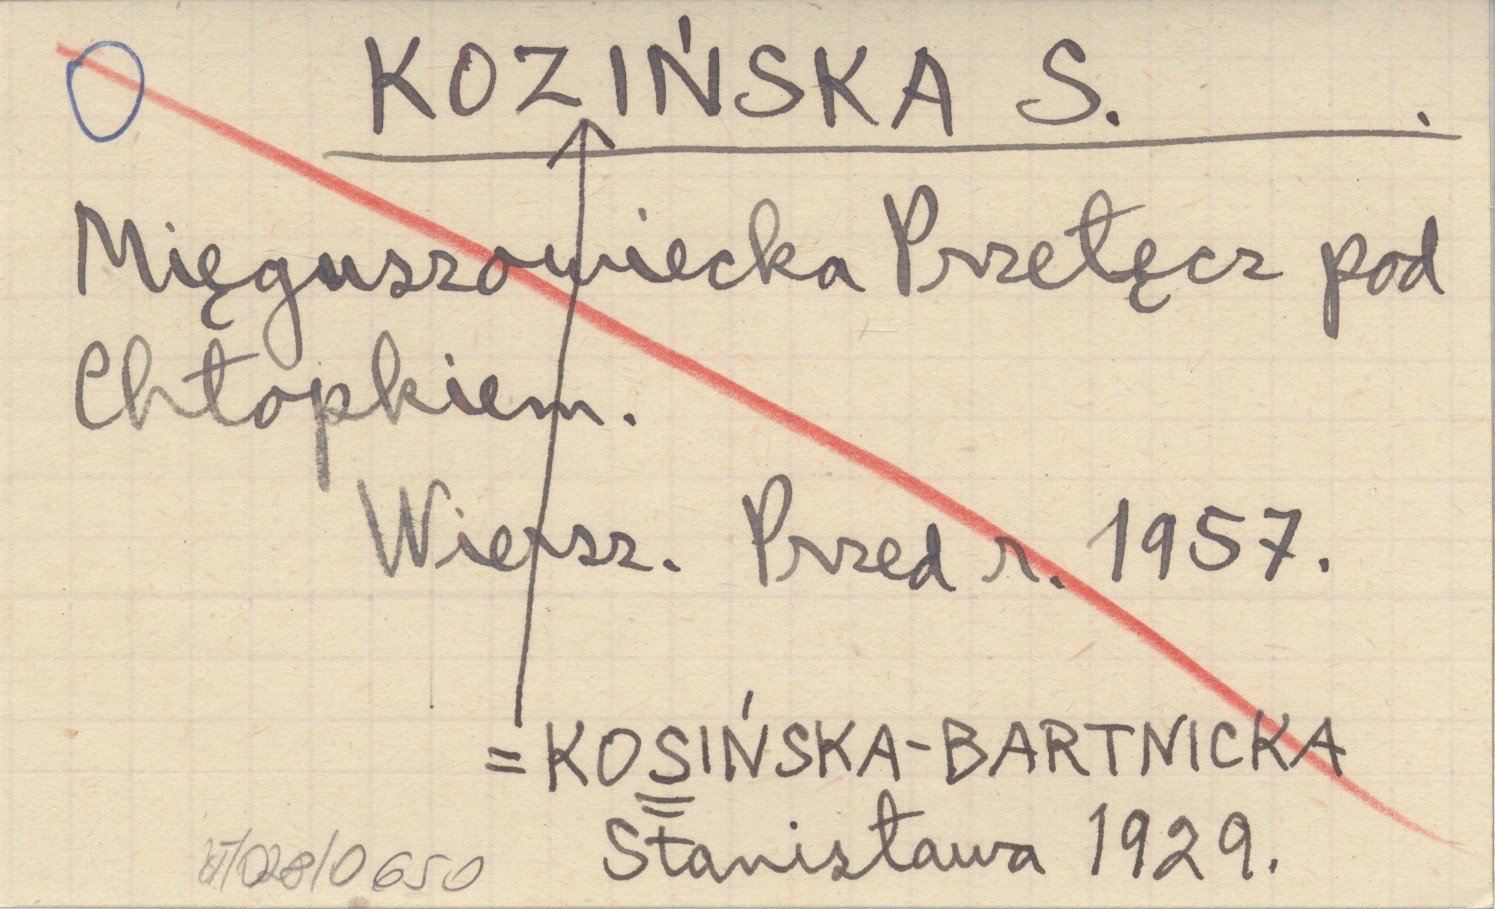 KOZIŃSKA S. .
Mięguszowiecka Przełęcz pod
Chłopkiem.
Wiersz. Przed r. 1957.
= KOSIŃSKA-BARTNICKA
Stanisława 1929.
/028/0650